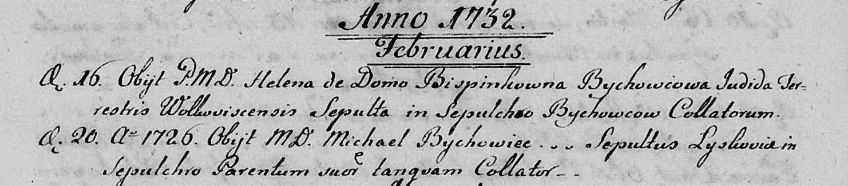 Anno 1732.
Februarius.
D. 16. Obijt P.M.D. Helena de Domo Bispinkowna Bychowcowa Judida Ter-
restris Wolkowiscensis Sepulta in Sepulchro Bychowcow Collatorum.
D. 20. Ao 1726. Obijt M.D. Michael Bychowiec . . . Sepultus Lyskoviæ in
Sepulchro Parentum suor tanquam Collator - -